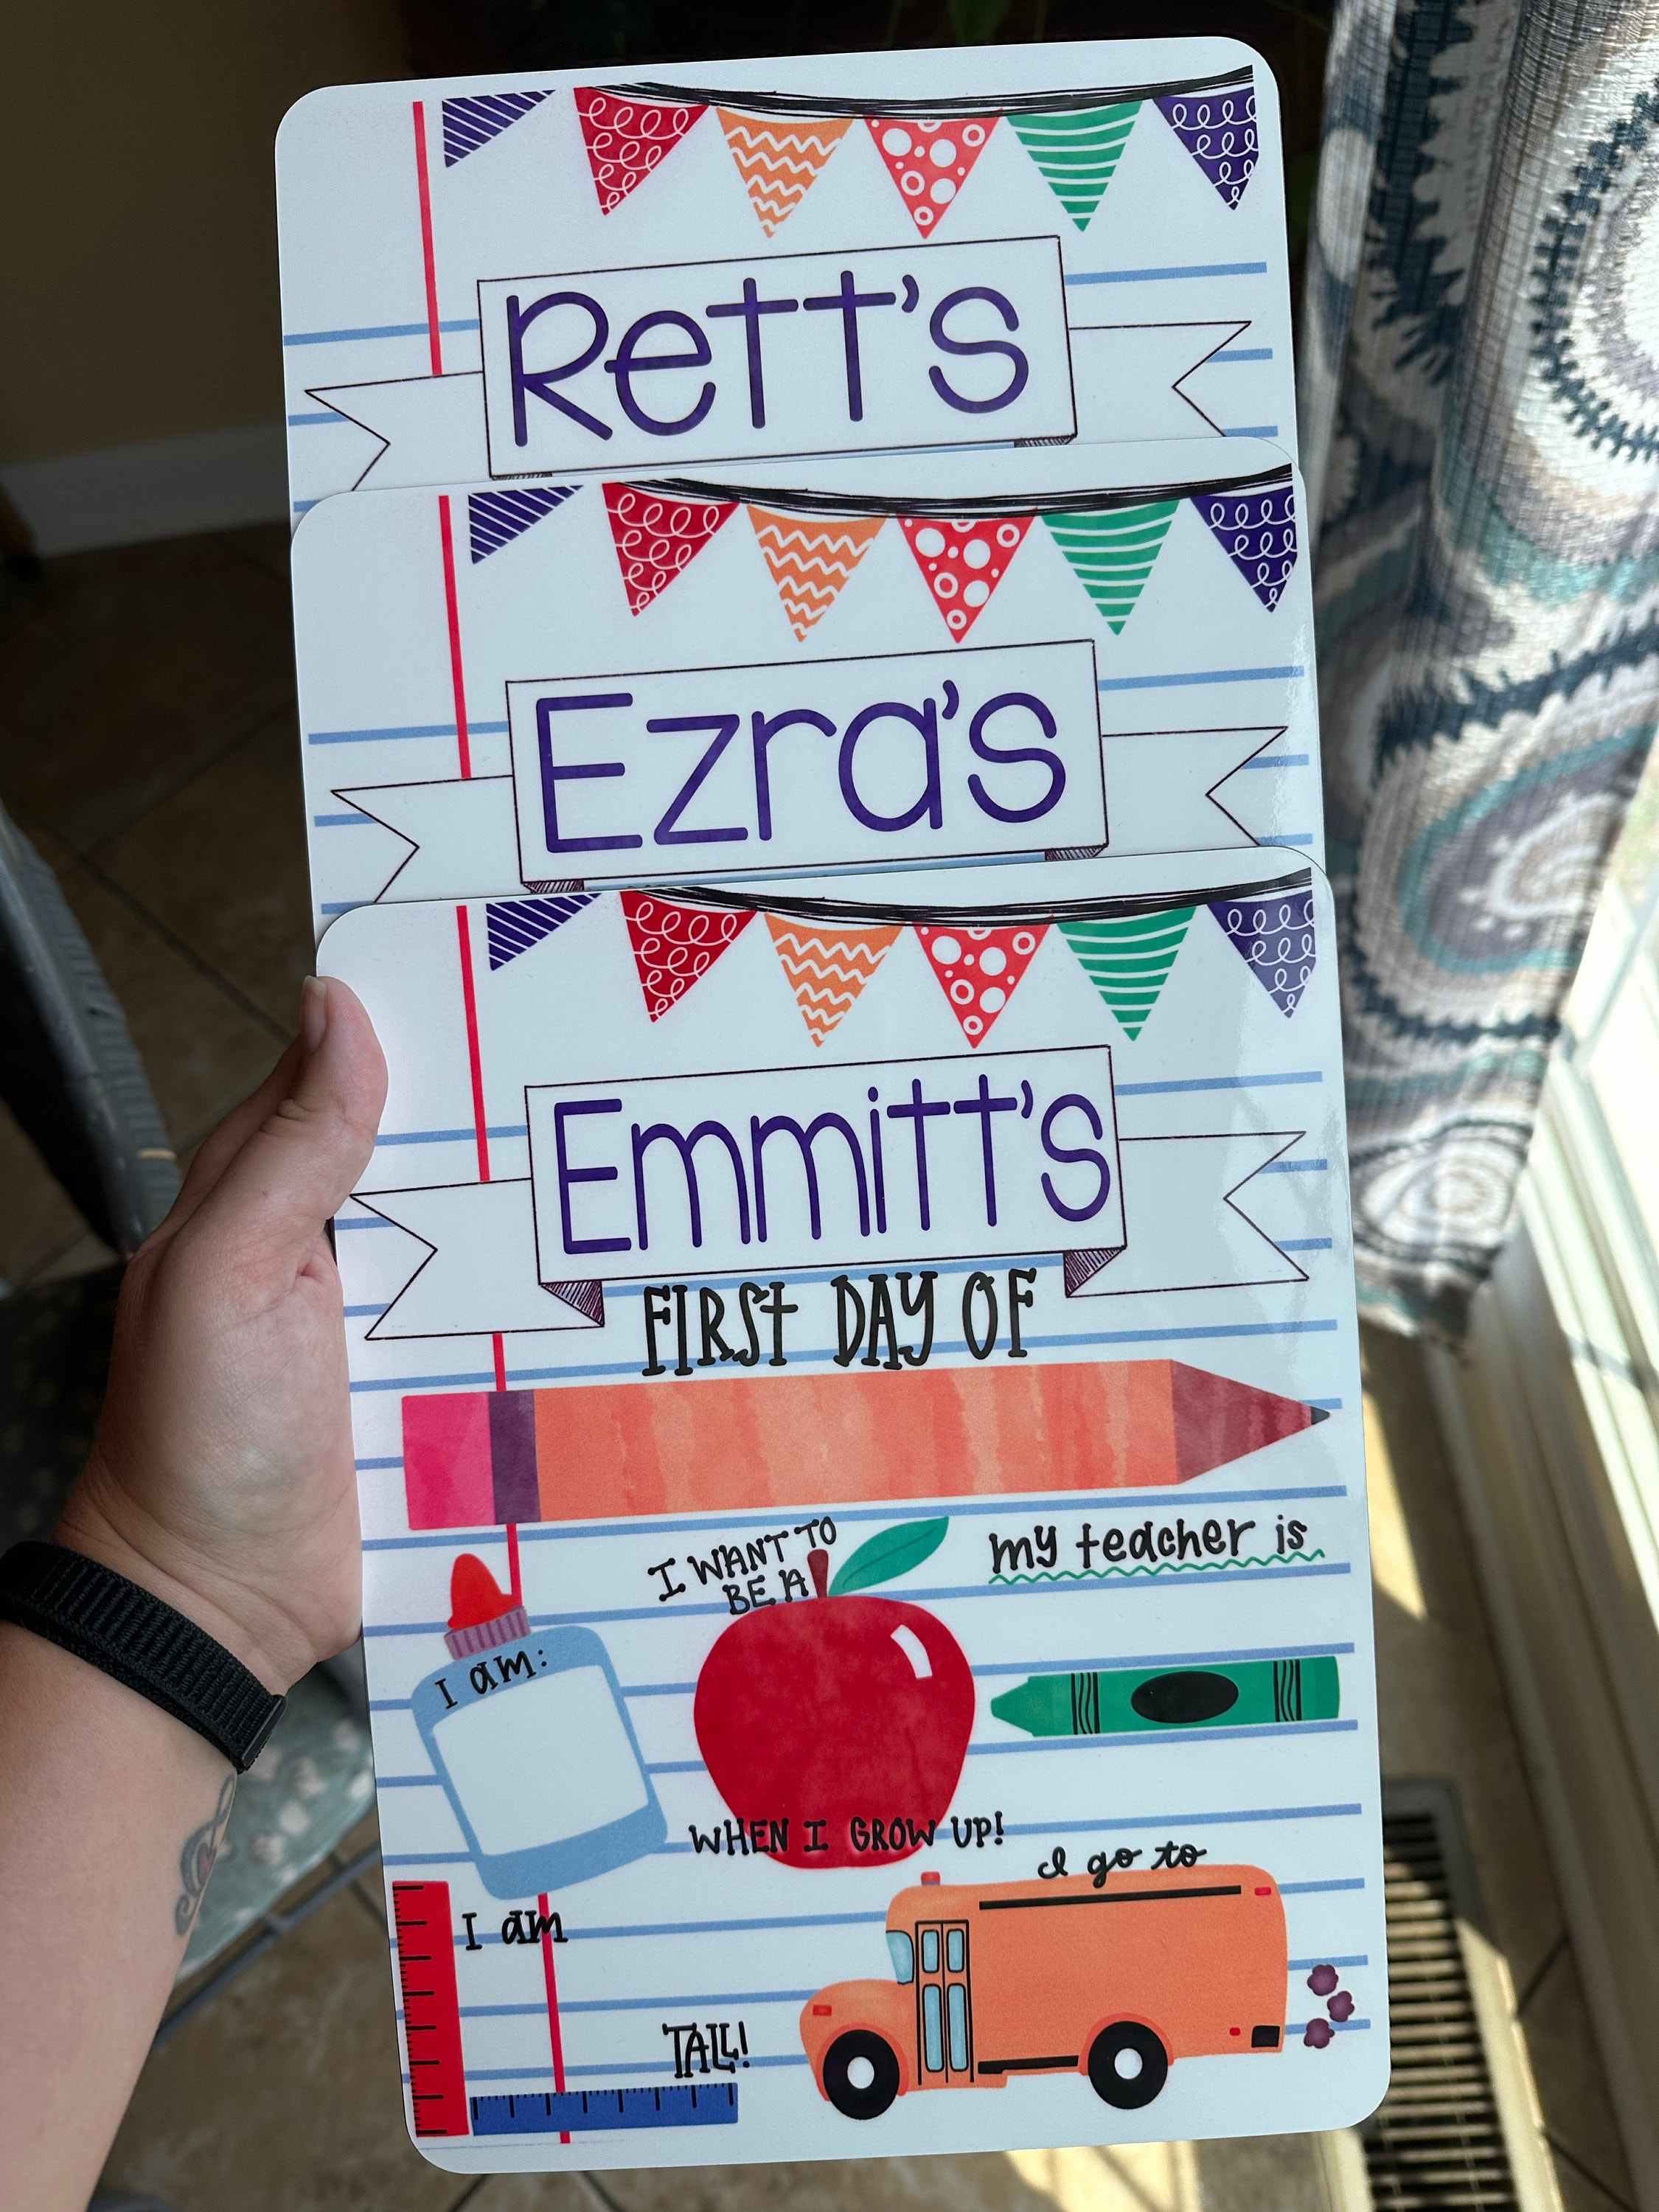 Rett's
Ezra's
Emmitt's
FIRST DAY OF
I WANT TO
BE A
my teacher is
I am:
WHEN I GROW UP!
I go to
I am
TALL!